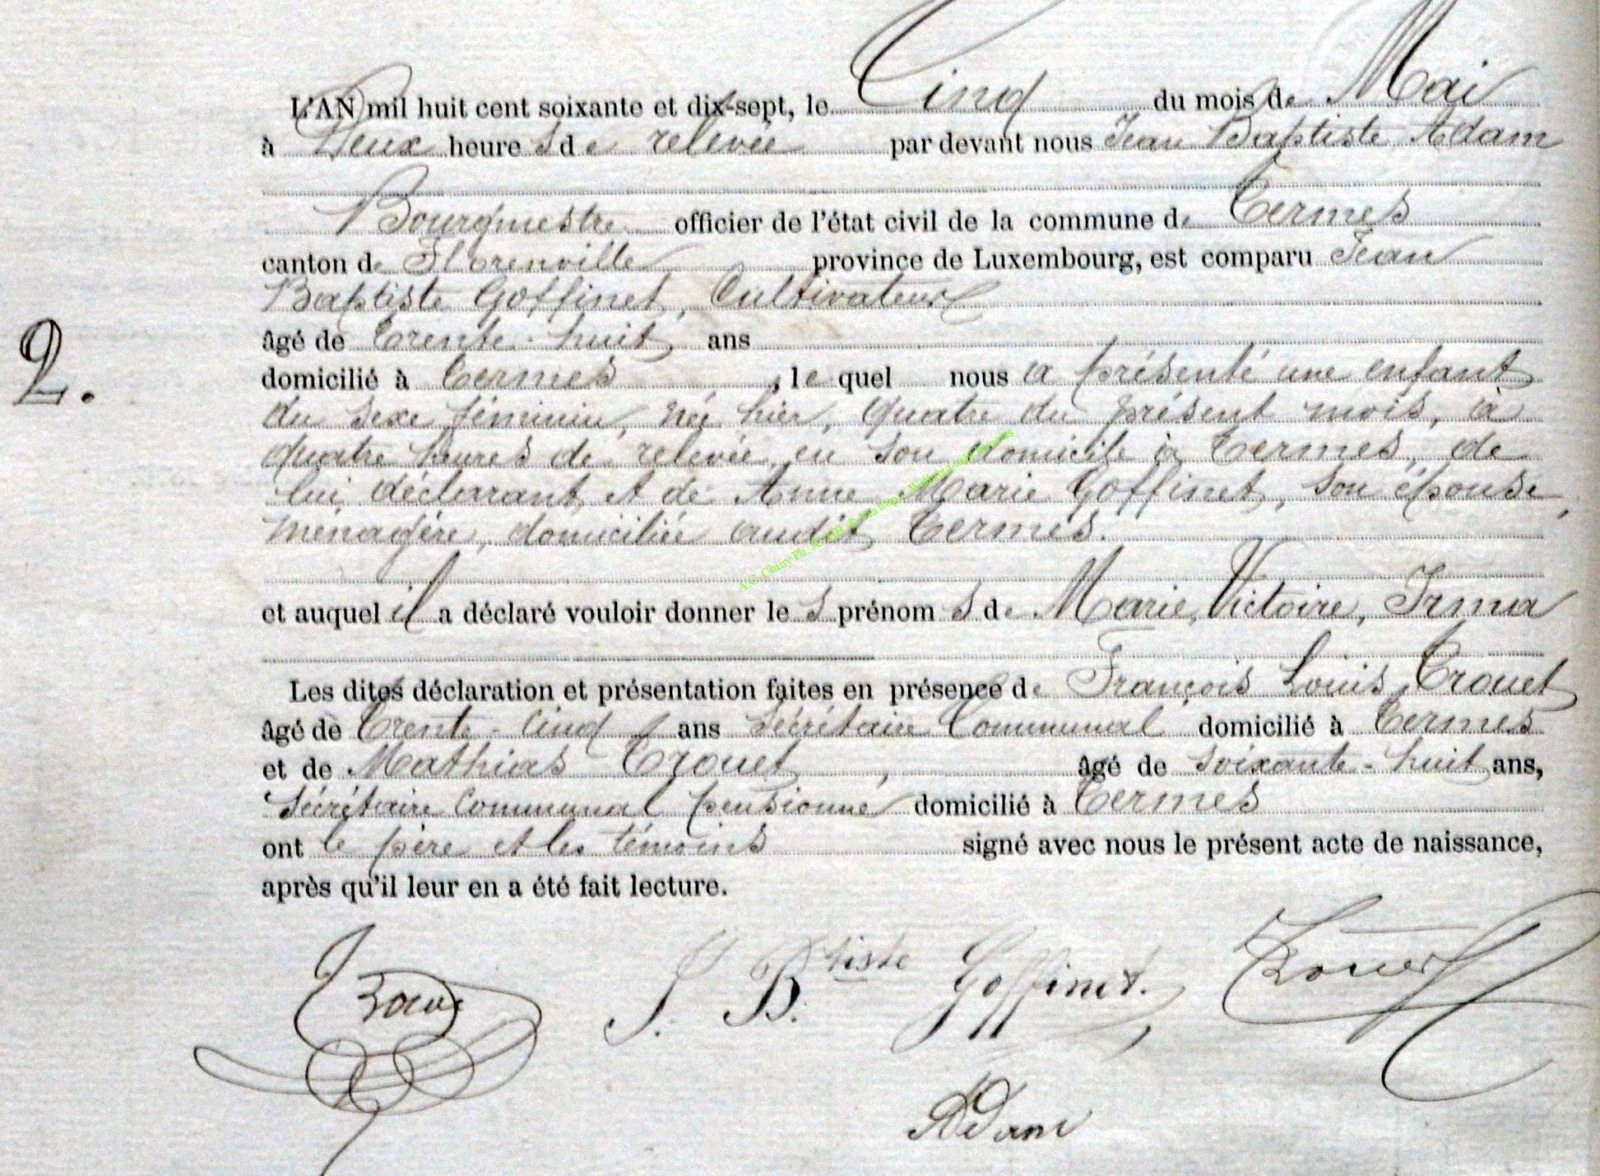 L'AN mil huit cent soixante et dix-sept, le Cinq du mois de Mai
à Deux heures de relevée par devant nous Jean Baptiste Adam
Bourgmestre officier de l'état civil de la commune de Termes
canton de Florenville province de Luxembourg, est comparu Jean
Baptiste Goffinet, Cultivateur
âgé de trente-huit ans
domicilié à Termes, lequel nous a présenté une enfant
du sexe féminin, née hier, quatre du présent mois, à
quatre heures de relevée, en son domicile à Termes, de
lui déclarant et de Anne Marie Goffinet, son épouse,
ménagère, domiciliée audit Termes.
et auquel il a déclaré vouloir donner les prénoms de Marie, Victoire, Irma
2.
Les dites déclaration et présentation faites en présence de François Louis Trouet
âgé de trente-cinq ans Secrétaire Communal domicilié à Termes
et de Mathias Trouet, âgé de soixante-huit ans,
Secrétaire Communal pensionné domicilié à Termes
ont le père et les témoins signé avec nous le présent acte de naissance,
après qu'il leur en a été fait lecture.
J. Btiste Goffinet. Trouet
Adam